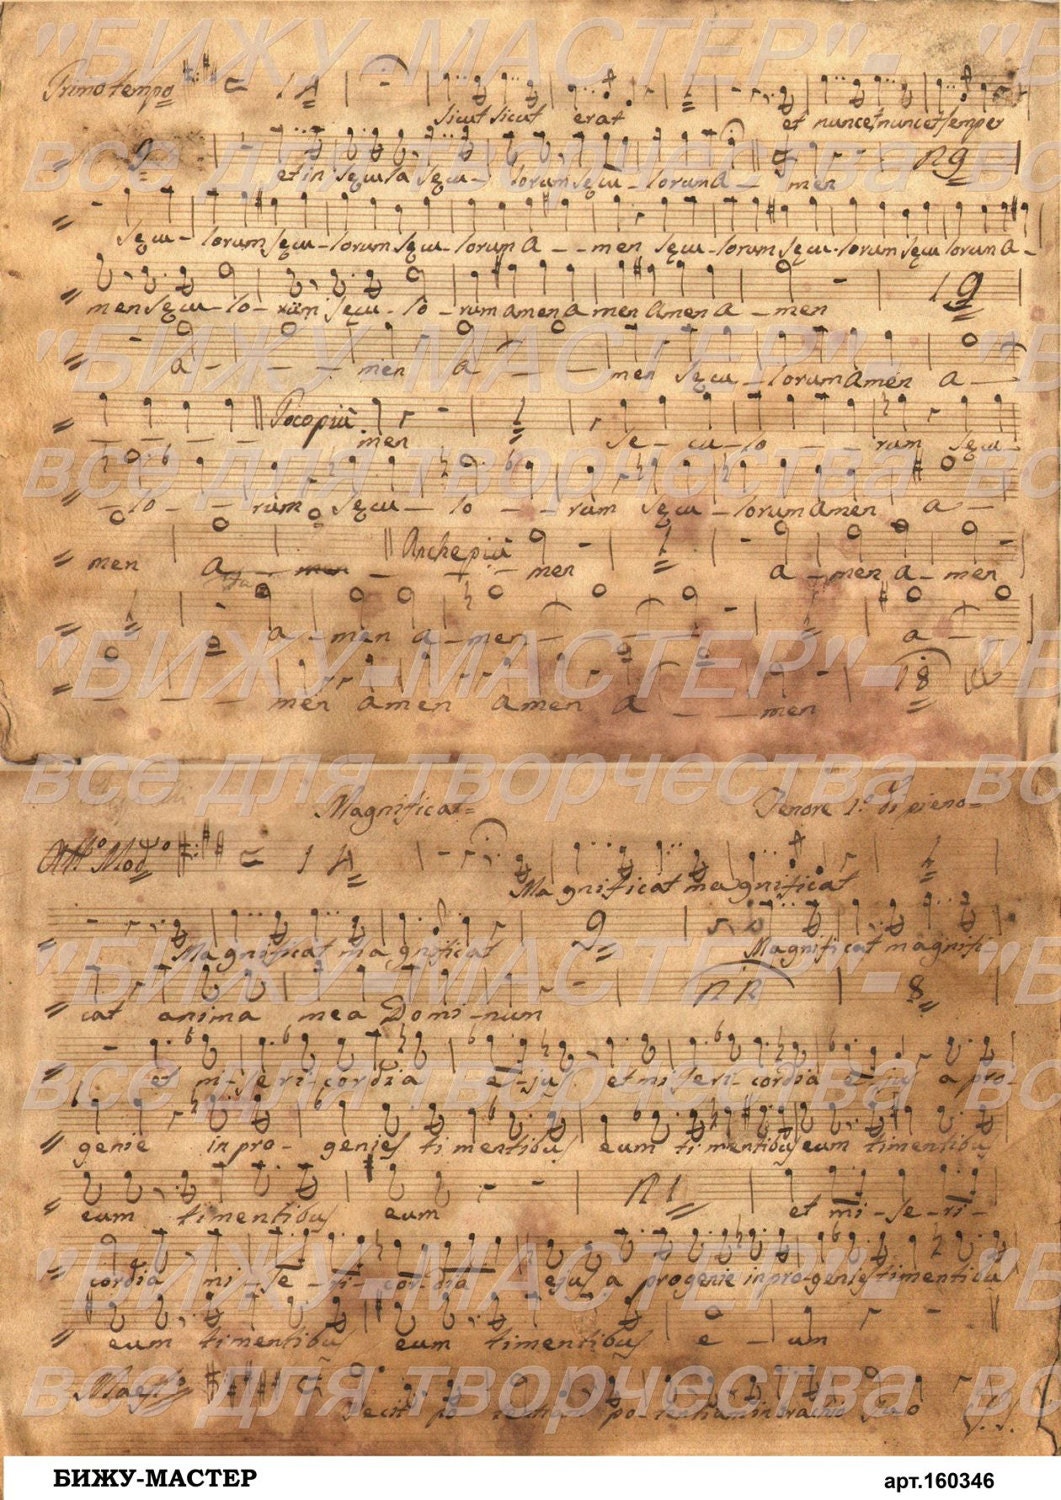 Primo tempo
Sicut sicut erat et nunc et nunc et semper
et in secula secu - lorum secu - lorum A - men
secu - lorum secu - lorum secu - lorum A - - men secu - lorum secu - lorum secu lorum A -
men secu - lo - rum secu - lo - rum amen A men Amen A - men
A - - - men A - - men secu - lorum Amen A -
Poco più men se - cu - lo - - rum secu -
- lo - - rum secu - lo - - rum secu - lorum Amen A -
men A men - - - men A - men A - men
A - men A - men - - - A -
- - - men Amen Amen A - - men
Magnificat = Tenore 1.º di pieno =
All.º Mod.to
Magnificat magnificat
Magnificat magnificat Magnificat magnifi -
cat anima mea Domi - num
et mi - seri - cordia e - jus et miseri - cordia ejus a pro -
genie in pro - genies timentibus eum timentibus eum timentibus
eum timentibus eum et mi - se - ri -
cordia mi - se - ri - cordia ejus a progenie in pro - genies timentibus
eum timentibus eum timentibus e - um
Maest.º
Fecit po tentiam po - tentiam in brachio suo
V. S.
"БИЖУ-МАСТЕР"-
все для творчества
БИЖУ-МАСТЕР арт.160346